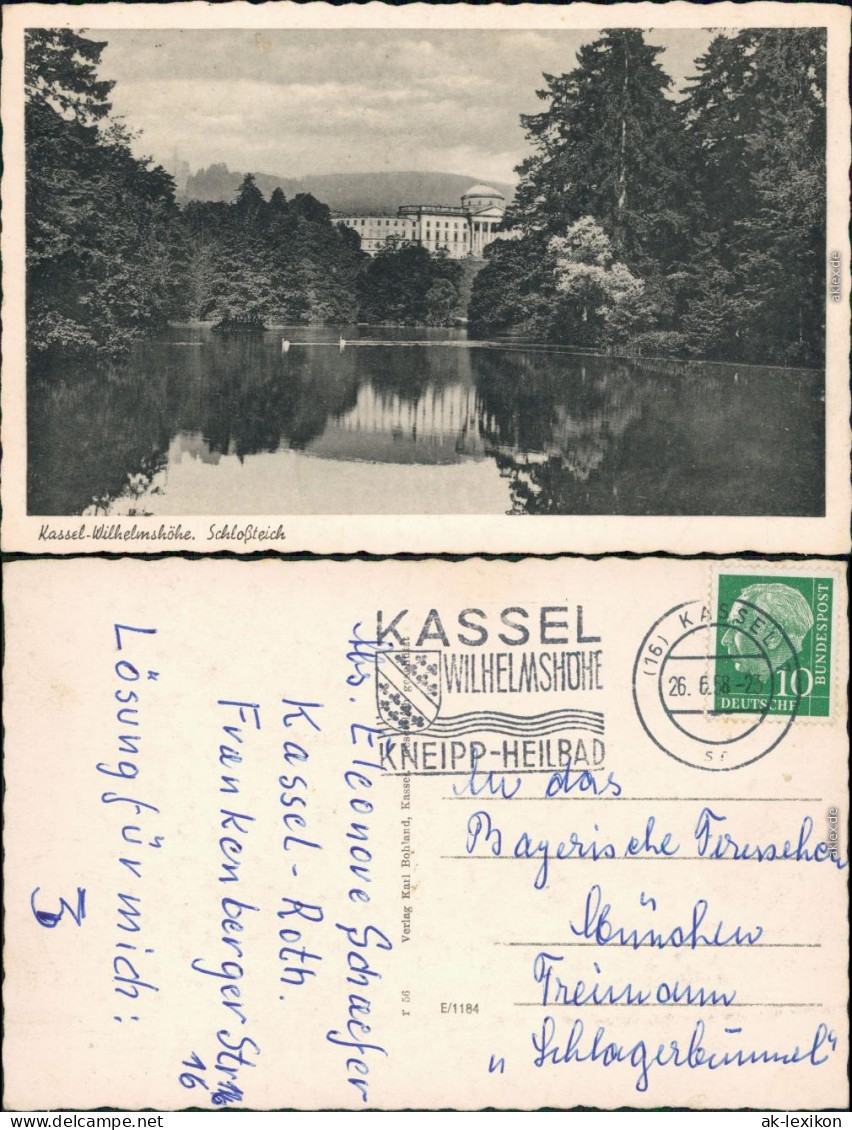 Kassel-Wilhelmshöhe. Schloßteich
KASSEL
WILHELMSHÖHE
KNEIPP-HEILBAD
(16) KASSEL
26. 6.58-23
10
BUNDESPOST
DEUTSCHE
An das
Bayerische Fernsehen
München
Freimann
"Schlagerbummel"
Abs. Eleonore Schaefer
Kassel-Roth.
Frankenberger Str. 16
16
Lösung für mich:
3
Verlag Karl Bohland, Kassel
r 56
E/1184
ak-lexikon.com
aklex.de
aklex.de